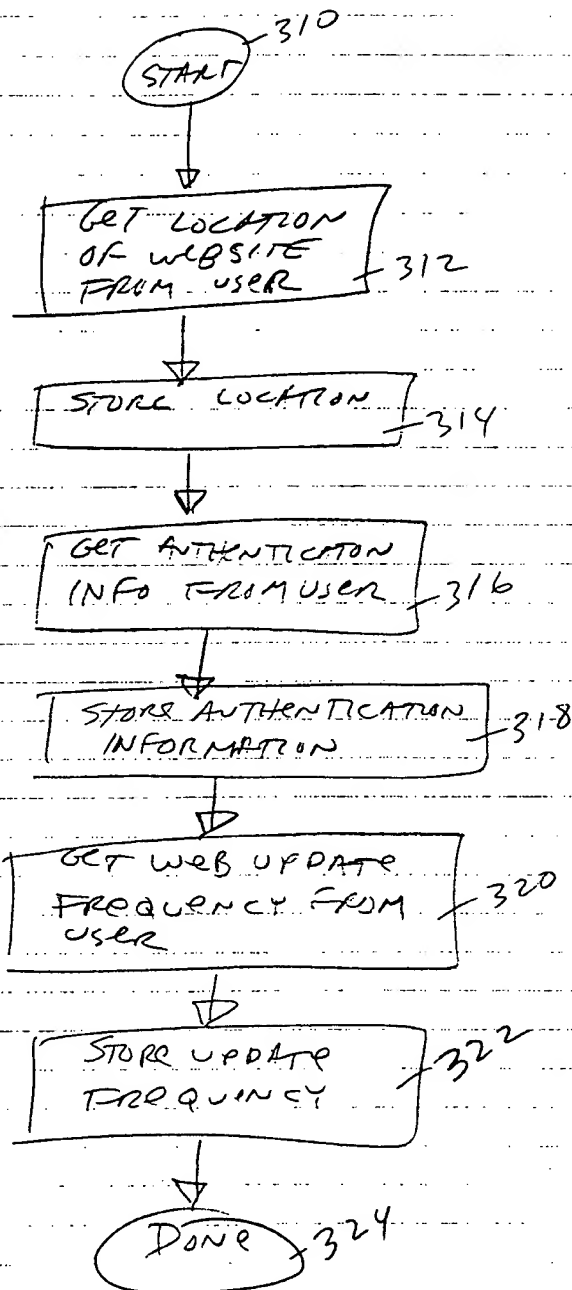 310
START
GET LOCATION
OF WEBSITE
FROM USER 312
STORE LOCATION
314
GET AUTHENTICATON
INFO FROM USER 316
STORE AUTHENTICATION
INFORMATION 318
GET WEB UPDATE
FREQUENCY FROM 320
USER
STORE UPDATE
FREQUENCY 322
DONE 324